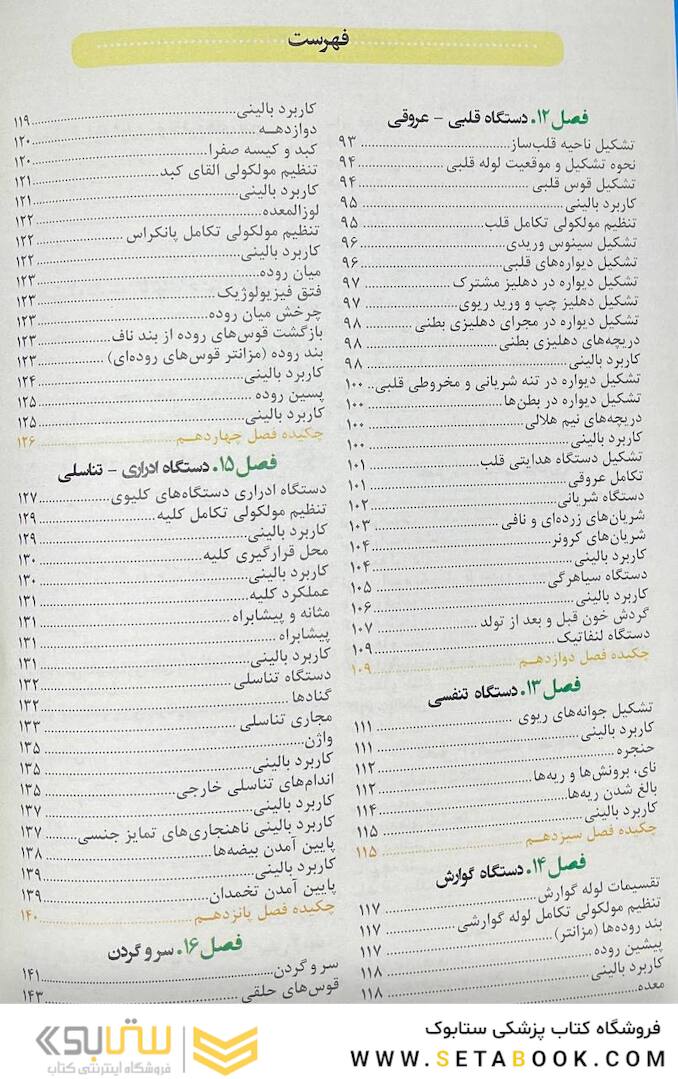 فهرست
فصل ۱۲. دستگاه قلبی - عروقی
تشکیل ناحیه قلب‌ساز ۹۳
نحوه تشکیل و موقعیت لوله قلبی ۹۴
تشکیل قوس قلبی ۹۴
کاربرد بالینی ۹۵
تنظیم مولکولی تکامل قلب ۹۵
تشکیل سینوس وریدی ۹۶
تشکیل دیواره‌های قلبی ۹۶
تشکیل دیواره در دهلیز مشترک ۹۷
تشکیل دهلیز چپ و ورید ریوی ۹۷
تشکیل دیواره در مجرای دهلیزی بطنی ۹۸
دریچه‌های دهلیزی بطنی ۹۸
کاربرد بالینی ۹۸
تشکیل دیواره در تنه شریانی و مخروطی قلبی ۱۰۰
تشکیل دیواره در بطن‌ها ۱۰۰
دریچه‌های نیم هلالی ۱۰۰
کاربرد بالینی ۱۰۰
تشکیل دستگاه هدایتی قلب ۱۰۱
تکامل عروقی ۱۰۱
دستگاه شریانی ۱۰۲
شریان‌های زرده‌ای و نافی ۱۰۳
شریان‌های کرونر ۱۰۴
کاربرد بالینی ۱۰۴
دستگاه سیاهرگی ۱۰۵
کاربرد بالینی ۱۰۶
گردش خون قبل و بعد از تولد ۱۰۷
دستگاه لنفاتیک ۱۰۹
چکیده فصل دوازدهم ۱۰۹
فصل ۱۳. دستگاه تنفسی
تشکیل جوانه‌های ریوی ۱۱۱
کاربرد بالینی ۱۱۱
حنجره ۱۱۲
نای، برونش‌ها و ریه‌ها ۱۱۲
بالغ شدن ریه‌ها ۱۱۴
کاربرد بالینی ۱۱۵
چکیده فصل سیزدهم ۱۱۵
فصل ۱۴. دستگاه گوارش
تقسیمات لوله گوارش ۱۱۷
تنظیم مولکولی تکامل لوله گوارشی ۱۱۷
بند روده‌ها (مزانتر) ۱۱۷
پیشین روده ۱۱۸
کاربرد بالینی ۱۱۸
معده
کاربرد بالینی ۱۱۹
دوازدهه ۱۲۰
کبد و کیسه صفرا ۱۲۰
تنظیم مولکولی القای کبد ۱۲۱
کاربرد بالینی ۱۲۱
لوزالمعده ۱۲۲
تنظیم مولکولی تکامل پانکراس ۱۲۲
کاربرد بالینی ۱۲۲
میان روده ۱۲۳
فتق فیزیولوژیک ۱۲۳
چرخش میان روده ۱۲۳
بازگشت قوس‌های روده از بند ناف ۱۲۳
بند روده (مزانتر قوس‌های روده‌ای) ۱۲۳
کاربرد بالینی ۱۲۴
پسین روده ۱۲۵
کاربرد بالینی ۱۲۵
چکیده فصل چهاردهم ۱۲۶
فصل ۱۵. دستگاه ادراری - تناسلی
دستگاه ادراری دستگاه‌های کلیوی ۱۲۷
تنظیم مولکولی تکامل کلیه ۱۲۹
کاربرد بالینی ۱۲۹
محل قرارگیری کلیه ۱۳۰
کاربرد بالینی ۱۳۰
عملکرد کلیه ۱۳۱
مثانه و پیشابراه ۱۳۱
پیشابراه ۱۳۱
کاربرد بالینی ۱۳۱
دستگاه تناسلی ۱۳۲
گنادها ۱۳۲
مجاری تناسلی ۱۳۳
واژن ۱۳۵
کاربرد بالینی ۱۳۵
اندام‌های تناسلی خارجی ۱۳۵
کاربرد بالینی ۱۳۷
کاربرد بالینی ناهنجاری‌های تمایز جنسی ۱۳۷
پایین آمدن بیضه‌ها ۱۳۸
کاربرد بالینی ۱۳۹
پایین آمدن تخمدان ۱۳۹
چکیده فصل پانزدهم ۱۴۰
فصل ۱۶. سر و گردن
سر و گردن ۱۴۱
قوس‌های حلقی ۱۴۳
فروشگاه کتاب پزشکی ستابوک
WWW.SETABOOK.COM
ستابوک
فروشگاه اینترنتی کتاب